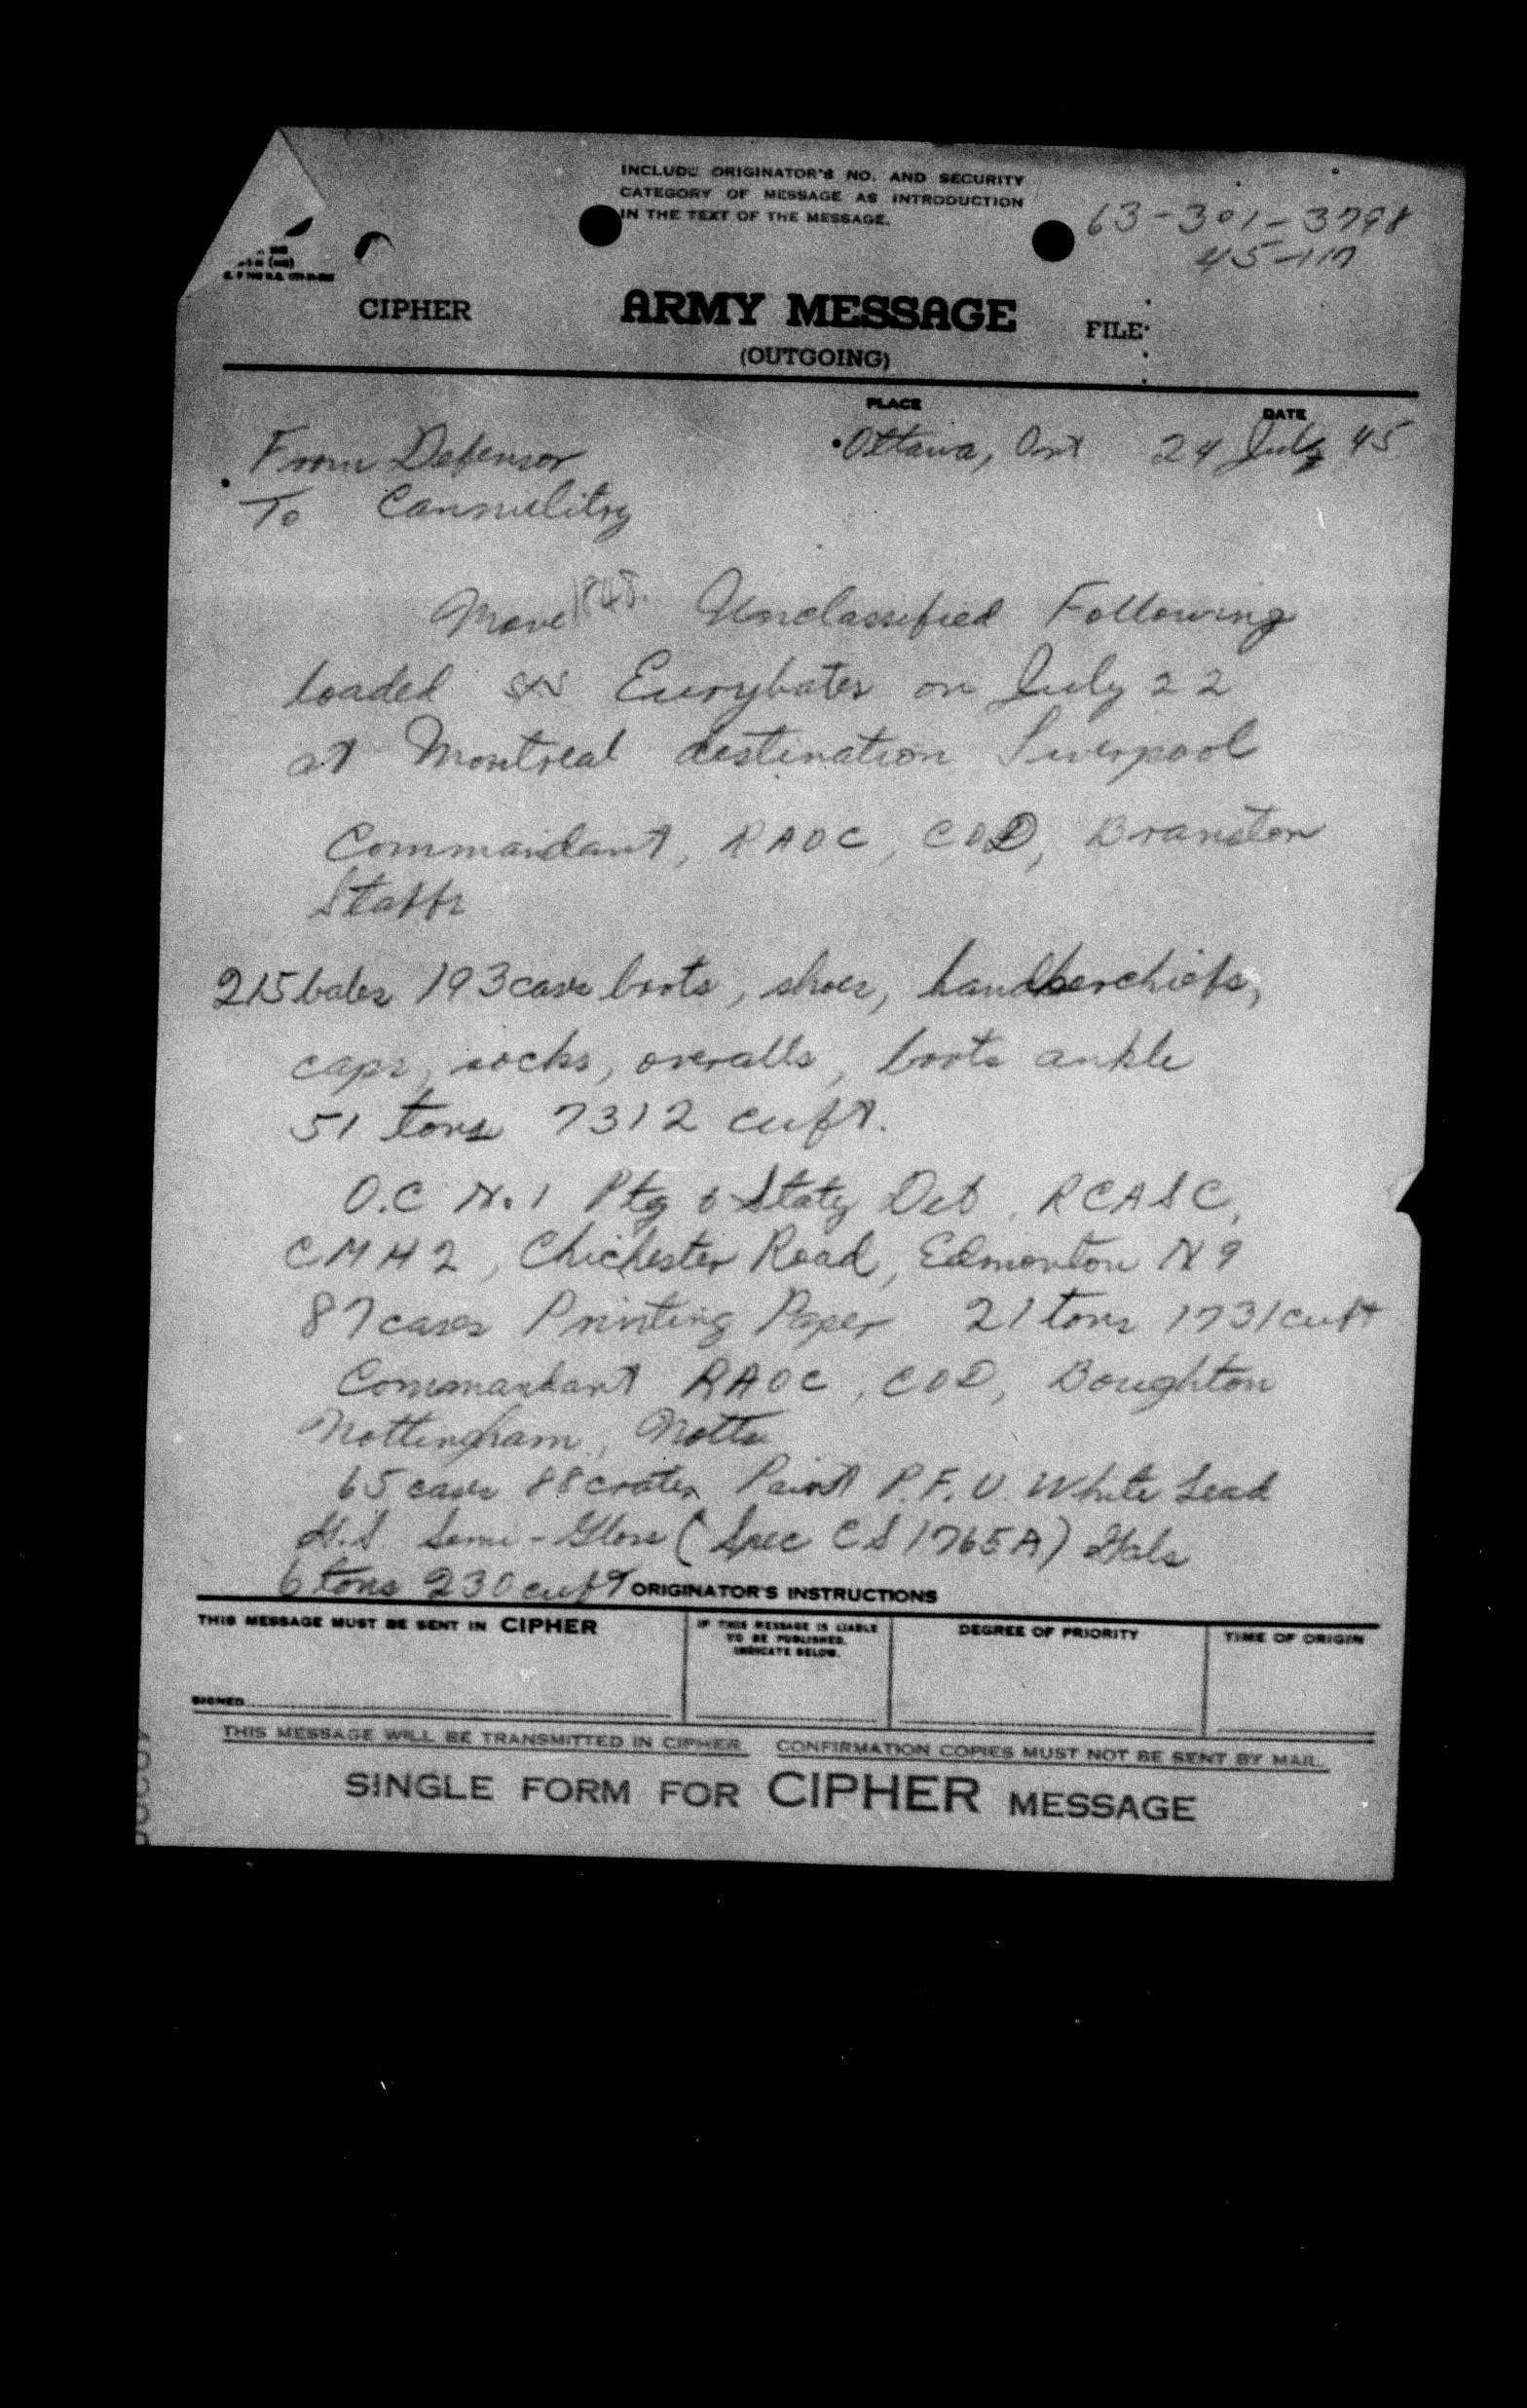 INCLUDE ORIGINATOR'S NO. AND SECURITY
CATEGORY OF MESSAGE AS INTRODUCTION
IN THE TEXT OF THE MESSAGE.
63-301-3798
CIPHER
ARMY MESSAGE
FILE
(OUTGOING)
PLACE
DATE
From Defensor
Ottawa, Ont 24 July 45
To Canmilitry
Move 1848 Unclassified Following
loaded SN Eurybates on July 22
at Montreal destination Liverpool
Commandant, RAOC, COD, Branston
Staffs
215 bales 193 cases boots, shoes, handkerchiefs,
caps, socks, overalls, boots ankle
51 tons 7312 cuft.
O.C No. 1 Ptg & Staty Det, RCASC,
CMH2, Chichester Road, Edmonton N9
87 cases Printing Paper 21 tons 1731 cuft
Commandant RAOC, COD, Boughton
Nottingham, Notts
65 cases 88 crates Paint P.F.U. White Lead
G.S. Semi-Gloss (Spec CS 1765A) Gals
6 tons 230 cuft
ORIGINATOR'S INSTRUCTIONS
THIS MESSAGE MUST BE SENT IN CIPHER
IF THIS MESSAGE IS LIABLE
TO BE PUBLISHED.
INDICATE BELOW.
DEGREE OF PRIORITY
TIME OF ORIGIN
SIGNED
THIS MESSAGE WILL BE TRANSMITTED IN CIPHER. CONFIRMATION COPIES MUST NOT BE SENT BY MAIL.
SINGLE FORM FOR CIPHER MESSAGE